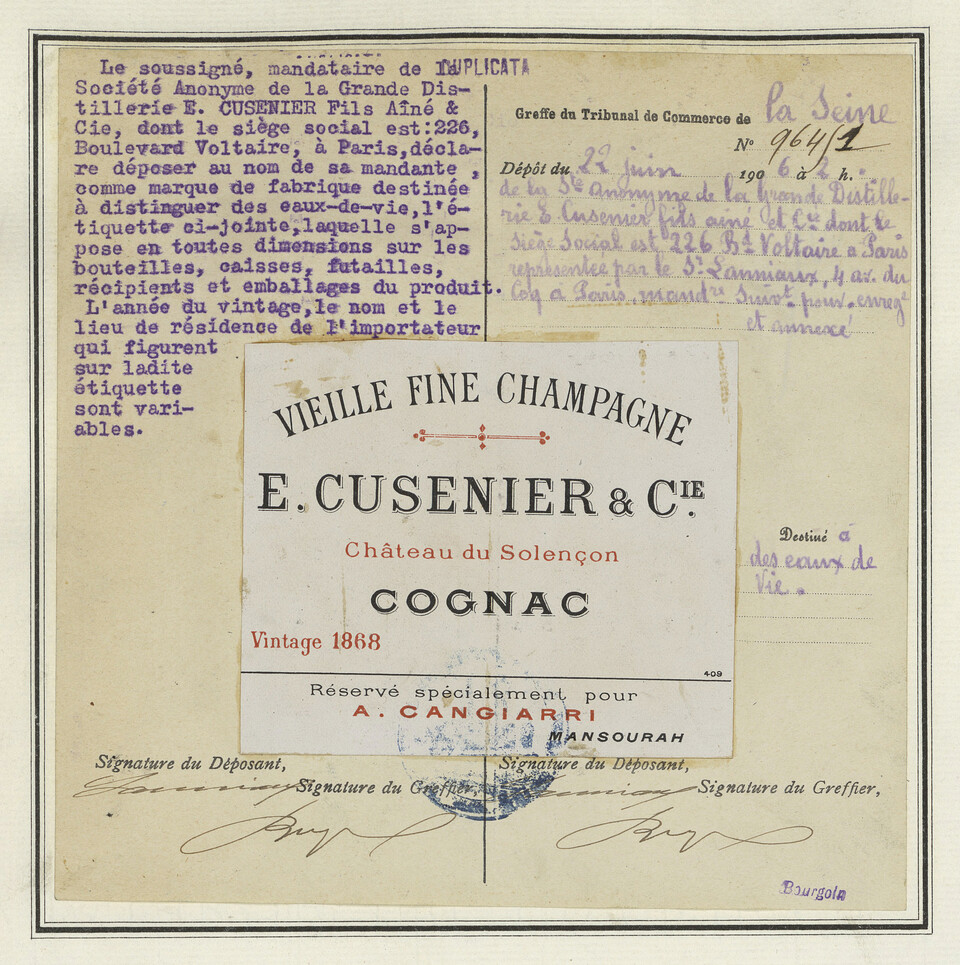 Le soussigné, mandataire de la
Société Anonyme de la Grande Dis-
tillerie E. CUSENIER Fils Aîné &
Cie, dont le siège social est:226,
Boulevard Voltaire, à Paris,décla-
re déposer au nom de sa mandante ,
comme marque de fabrique destinée
à distinguer des eaux-de-vie,l'é-
tiquette ci-jointe,laquelle s'ap-
pose en toutes dimensions sur les
bouteilles, caisses, futailles,
récipients et emballages du produit.
L'année du vintage,le nom et le
lieu de résidence de l'importateur
qui figurent
sur ladite
étiquette
sont vari-
ables.
DUPLICATA
Greffe du Tribunal de Commerce de la Seine
N° 964/1
Dépôt du 22 juin 1906 à 2 h.
de la Sté Anonyme de la Grande Distille-
rie E. Cusenier fils ainé et Cie dont le
siège Social est 226 Bd Voltaire a Paris
représentée par le Sr Lanniaux, 4 av. du
Coq a Paris, mandre Suivt pouv. enregé
et annexé
VIEILLE FINE CHAMPAGNE
E. CUSENIER & CIE.
Château du Solençon
COGNAC
Vintage 1868
409
Réservé spécialement pour
A. CANGIARRI
MANSOURAH
Destiné à
des eaux de
Vie.
Signature du Déposant,
Signature du Greffier,
Signature du Déposant,
Signature du Greffier,
Bourgoin